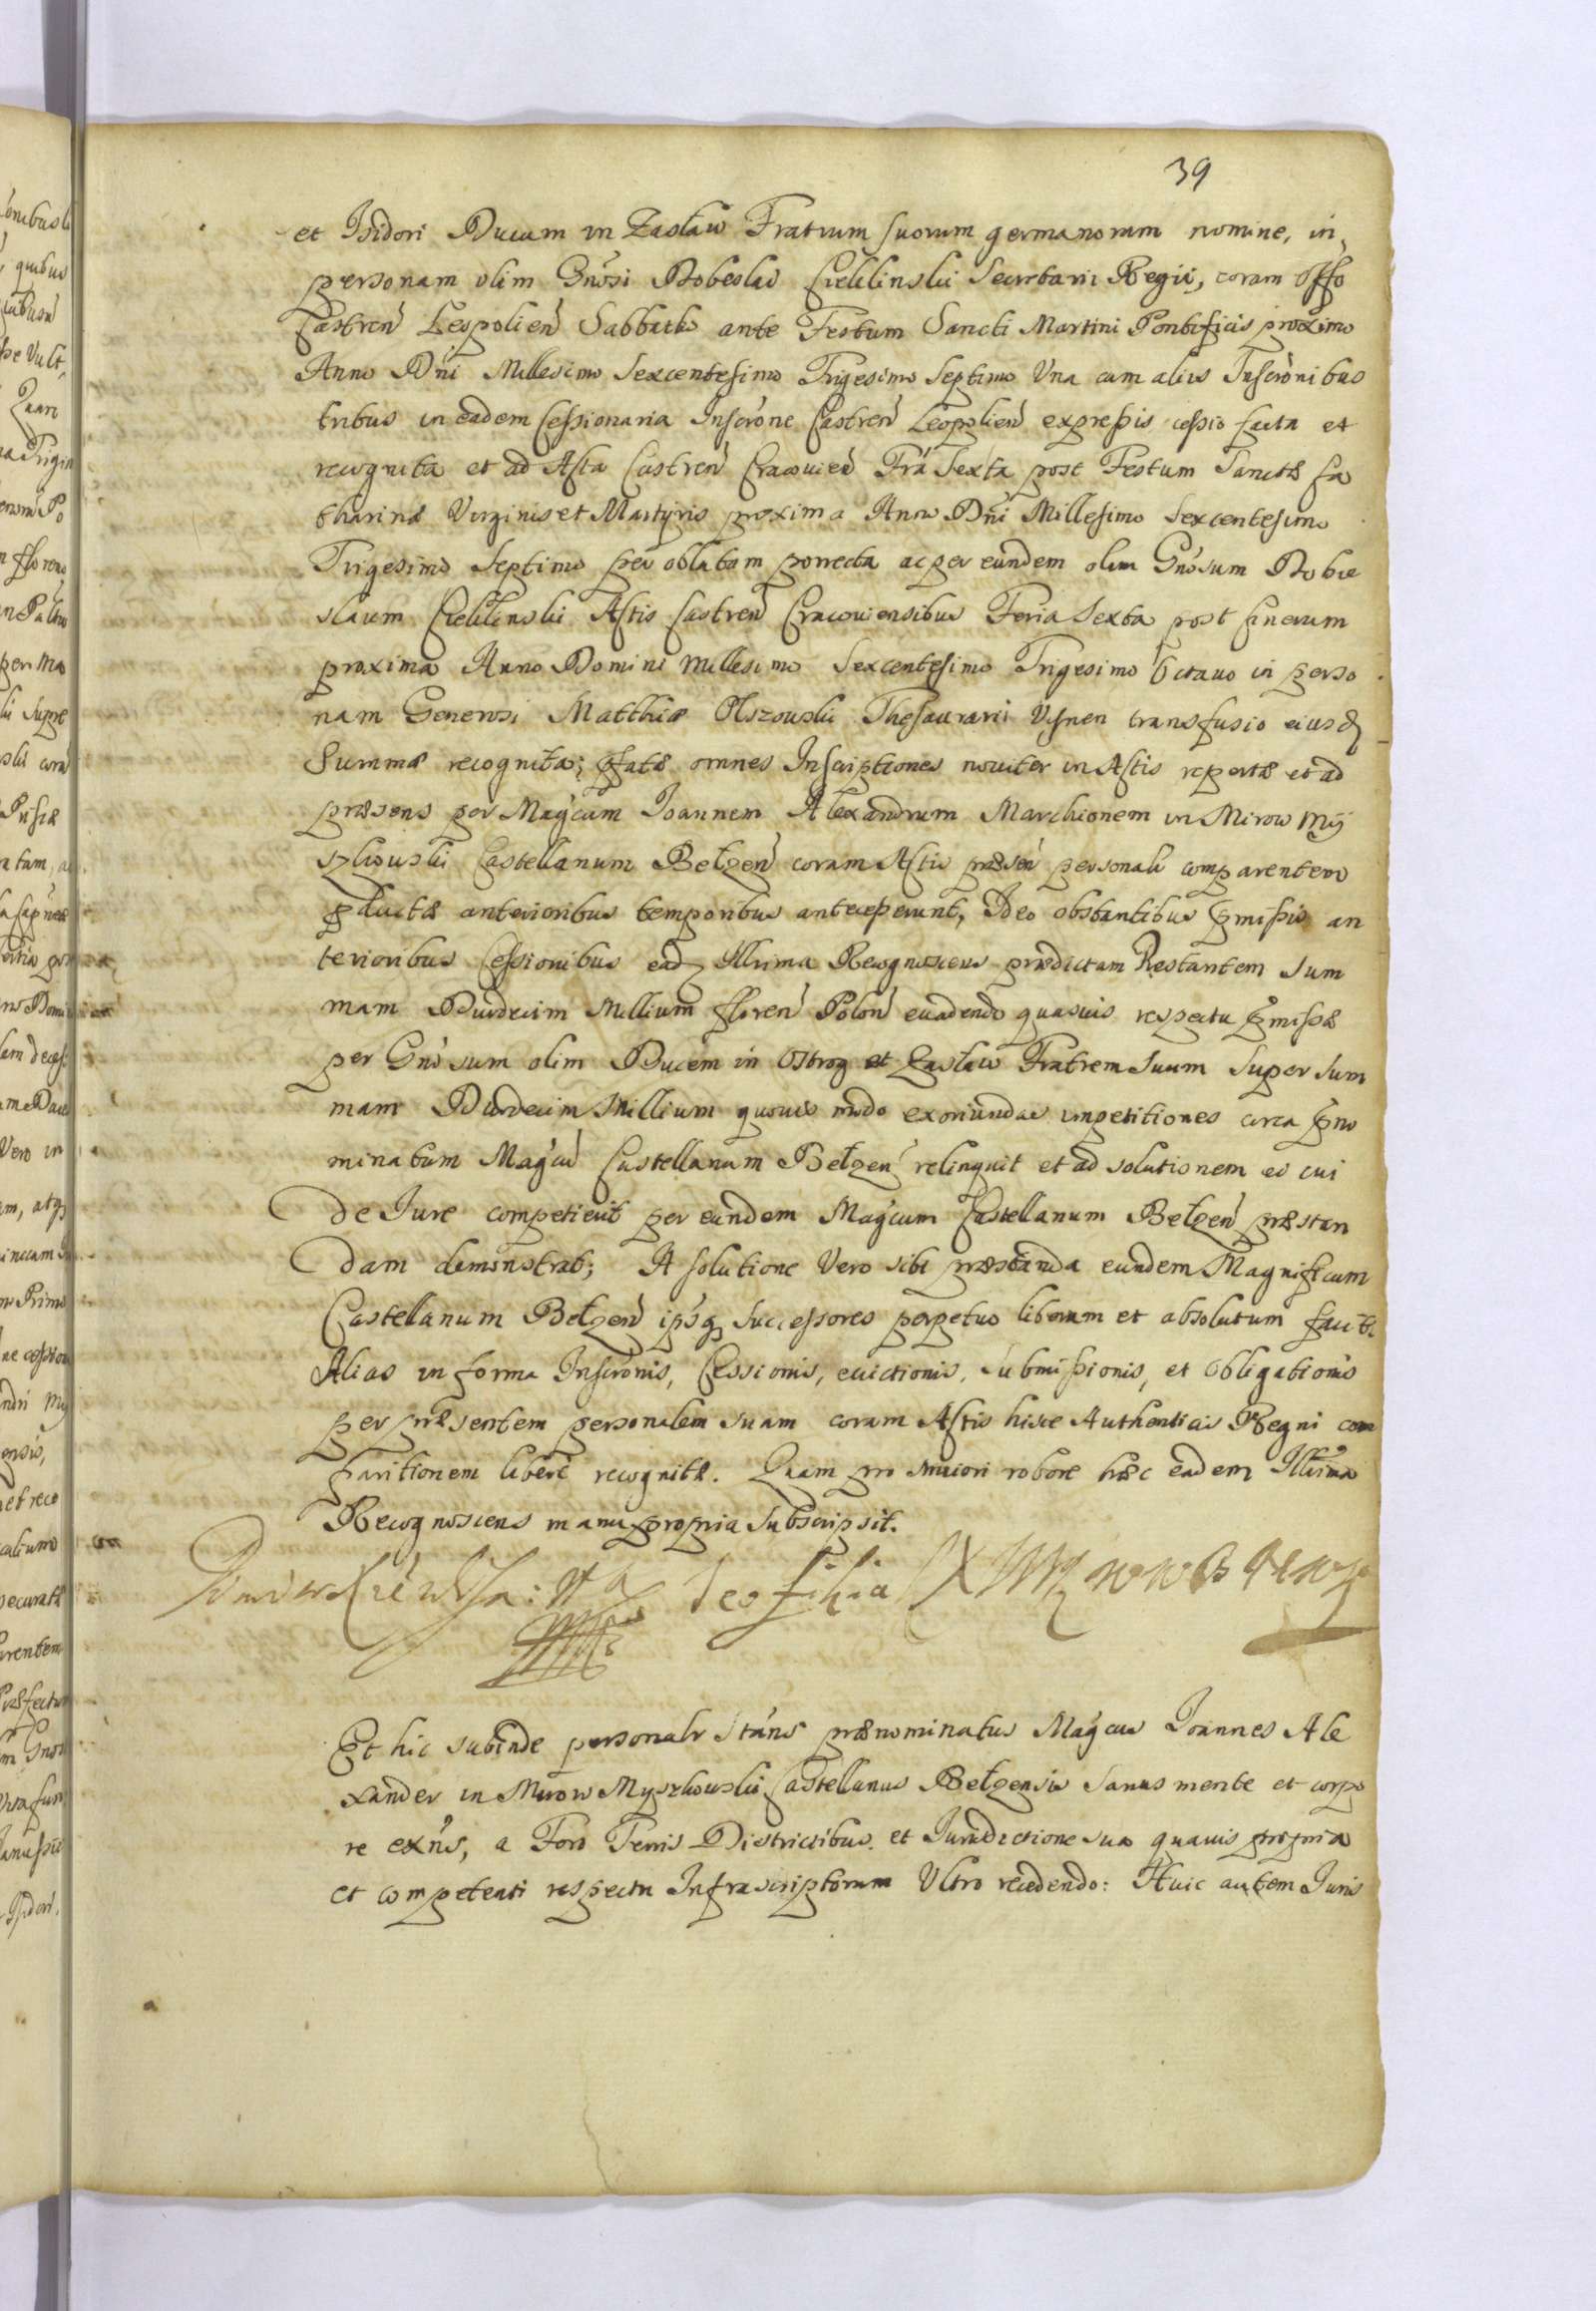 39
et Isidori Ducum in Zasław Fratrum suorum germanorum nomine, in
personam olim Gnosi Dobeslai Cieklinski Secretarii Regii, coram Offo
Castren Leopolien Sabbatho ante Festum Sancti Martini Pontificis proximo
Anno Dni Millesimo Sexcentesimo Trigesimo Septimo Una cum aliis Inscronibus
tribus in eadem Cessionaria Inscrone Castren Leopolien expressis cessio facta et
recognita et ad Acta Castren Cracovien Fra Sexta post Festum Sanctæ Ca
tharinæ Virginis et Martyris proxima Anno Dni Millesimo Sexcentesimo
Trigesimo Septimo per oblatam porrecta ac per eundem olim Gnosum Dobie
slaum Cieklinski Actis Castren Cracoviensibus Feria Sexta post Cinerum
proxima Anno Domini Millesimo Sexcentesimo Trigesimo Octavo in perso
nam Generosi Matthiæ Olszowski Thesaurarii Visnen transfusio eiusd
Summæ recognita; pfatæ omnes Inscriptiones noviter in Actis repertæ et ad
præsens per Magcum Joannem Alexandrum Marchionem in Mirow My
szkowski Castellanum Bełzen coram Actis præsen personalr comparentem
pductæ anterioribus temporibus antecesserunt, Ideo obstantibus pmissis an
terioribus Cessionibus ead Illrima Recognoscens prædictam Restantem Sum
mam Duodecim Millium floren Polon evadendo quasvis respectu pmissæ
per Gnosum olim Ducem in Ostrog et Zasław Fratrem Suum Super Sum
mam Duodecim Millium quovis modo exoriundas impetitiones circa pno
minatum Magcum Castellanum Bełzen relinquit et ad solutionem ei cui
de Jure competierit per eundem Magcum Castellanum Bełzen præstan
dam demonstrat; A solutione Vero sibi præstanda eundem Magnificum
Castellanum Bełzen ipsq Successores perpetuo liberum et absolutum facit.
Alias in forma Inscronis, Cessionis, evictionis, Submissionis, et Obligationis
per præsentem personalem suam coram Actis hisce Authenticis Regni com
paritionem libere recognitæ. Quam pro maiori robore hæc eadem Illrima
Recognoscens manu propria Subscripsit.
Teofilia
Et hic subinde personalr Stans prænominatus Magcus Joannes Ale
xander in Mirow Myszkowski Castellanus Bełzensis Sanus mente et corpo
re exns, a Foro Terris Districtibus et Jurisdictione sua quavis propria
et competenti respectu Infrascriptorum Ultro recedendo: Huic autem Juris